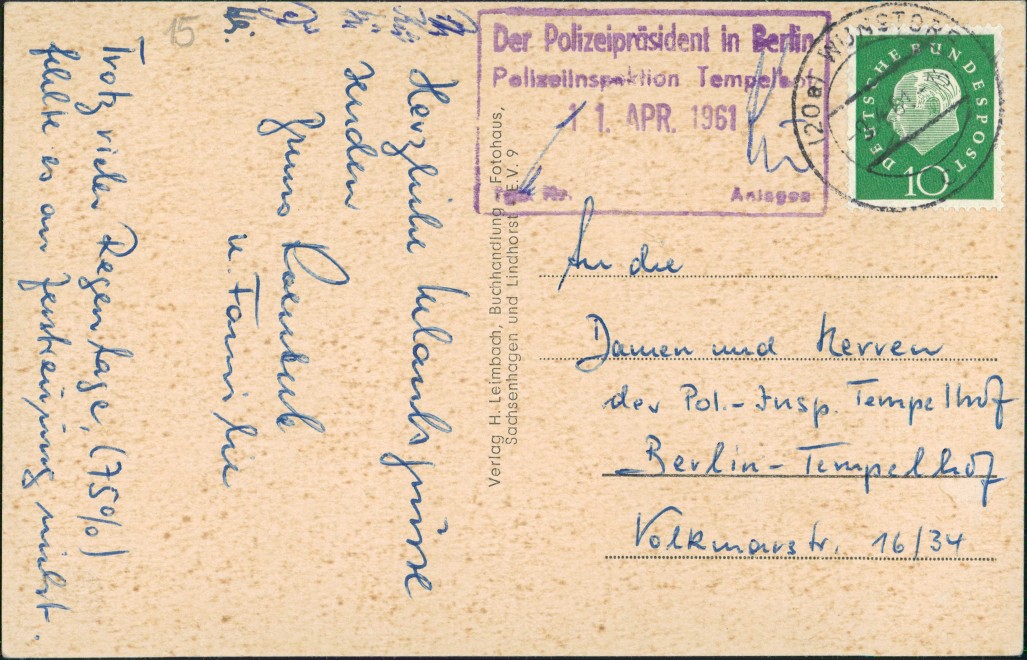 15
Herzliche Urlaubsgrüsse
senden
u. Familie
Trotz vieler Regentage, (75%)
fehlte es an
nicht.
Verlag H. Leimbach, Buchhandlung, Fotohaus,
Sachsenhagen und Lindhorst E.V. 9
Der Polizeipräsident in Berlin
Polizeiinspektion Tempelhof
11. APR. 1961
Tgb. Nr. Anlagen
(20a) WUNSTORF
DEUTSCHE BUNDESPOST
10
An die
Damen und Herren
der Pol.-Insp. Tempelhof
Berlin-Tempelhof
Volkmarstr. 16/34